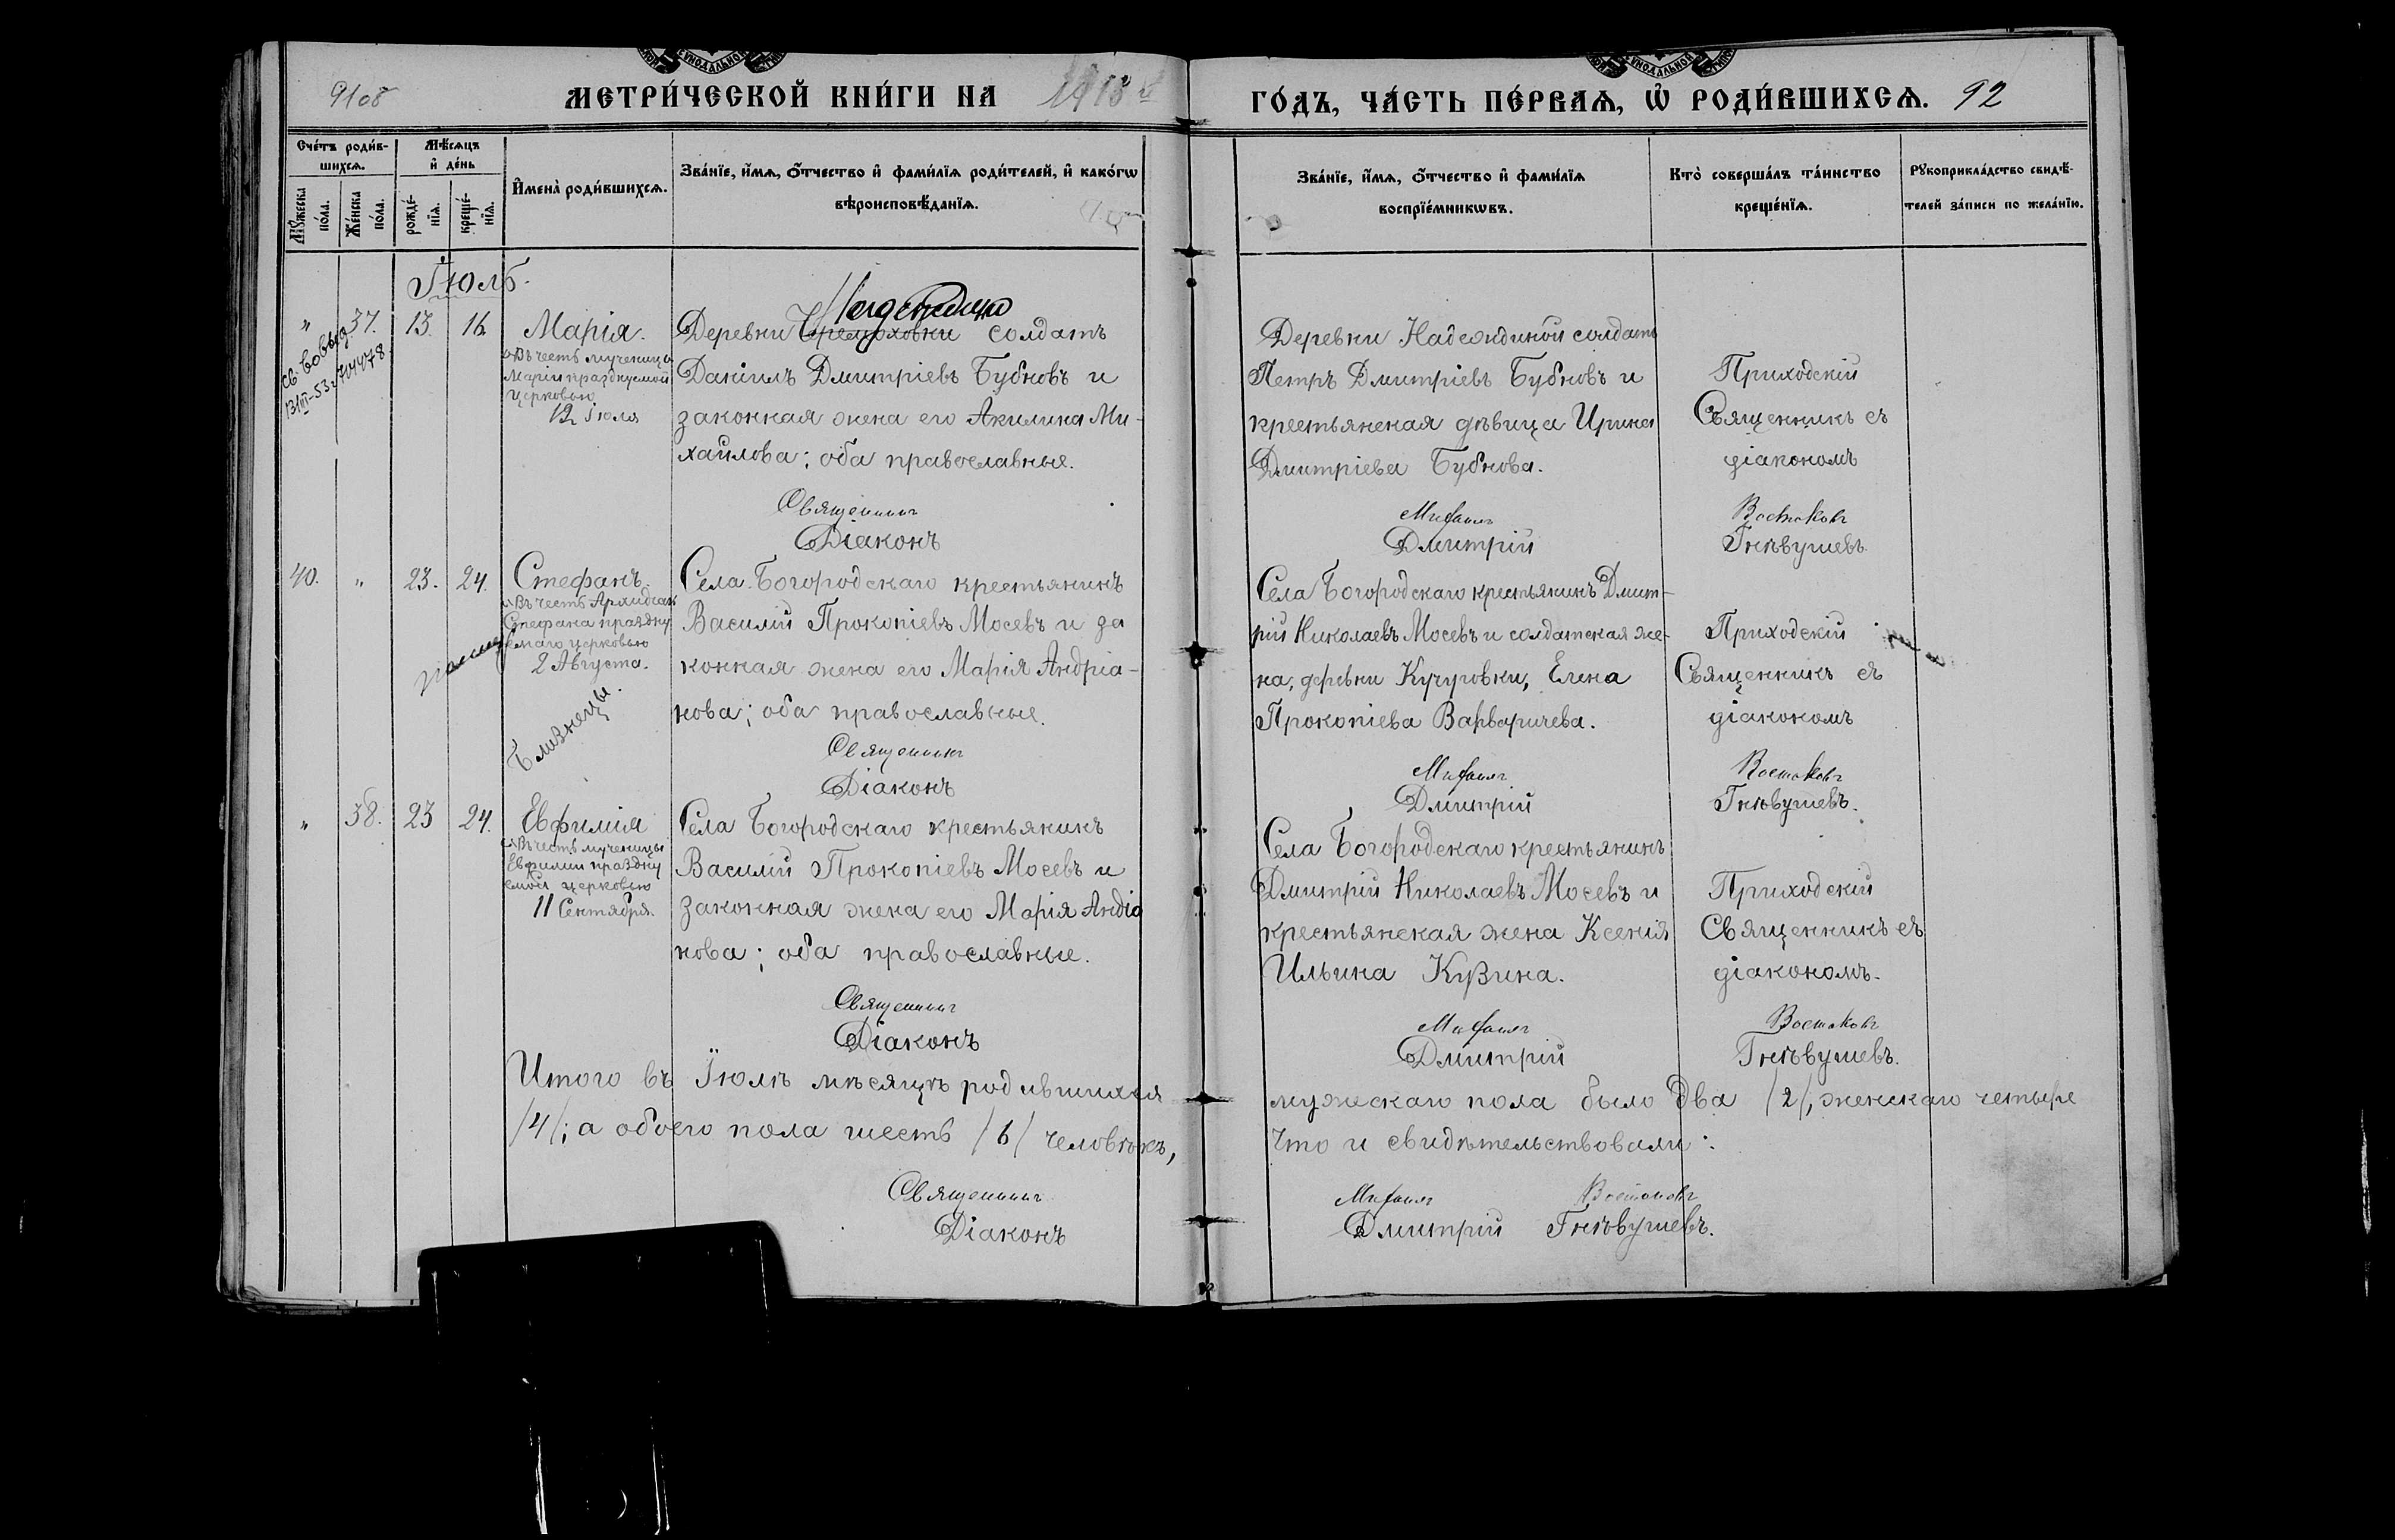 9108
МЕТРИ́ЧЕСКОЙ КНИ́ГИ НА 1918 й
ГО́ДЪ, ЧА́СТЬ ПЕ́РВАѦ, Ѽ РОДИ́ВШИХСѦ. 92
Сче́тъ роди́в-
шихсѧ.
Мꙋ́жеска
по́ла.
Же́нска
по́ла.
Мѣ́сѧцъ
и҆ де́нь
рожде́-
нїѧ.
креще́-
нїѧ.
И҆мена̀ роди́вшихсѧ.
Зва́нїе, и҆́мѧ, ѻ҆́тчество и҆ фами́лїѧ роди́телей, и҆ како́гѡ
вѣроисповѣ́данїѧ.
Зва́нїе, и҆́мѧ, ѻ҆́тчество и҆ фами́лїѧ
воспрїе́мникѡвъ.
Кто̀ соверша́лъ та́инство
креще́нїѧ.
Рꙋкоприкла́дство свидѣ́-
телей за́писи по жела́нїю.
Іюль.
" 37. 13. 16.
св. во выд.
13/III-53
Марія.
Въ честь мученицы
Маріи празднуемой
церковью
12 Іюля
Деревни солдатъ
Даніилъ Дмитріевъ Бубновъ и
законная жена его Акилина Ми-
хаилова; оба православные.
Священникъ
Діаконъ
Деревни Надеждиной солдатъ
Петръ Дмитріевъ Бубновъ и
крестьянская дѣвица Ирина
Дмитріева Бубнова.
Михаилъ
Дмитрій
Приходскій
Священникъ съ
діакономъ
Востоковъ
Гнѣвушевъ.
40. " 23. 24.
Стефанъ.
Въ честь Архидіак
Стефана праздну
емаго церковью
2 Августа.
Близнецы.
Села Богородскаго крестьянинъ
Василій Прокопіевъ Мосевъ и за
конная жена его Марія Андріа-
нова; оба православные.
Священникъ
Діаконъ
Села Богородскаго крестьянинъ Дмит-
рій Николаевъ Мосевъ и солдатская же-
на, деревни Кучуровки, Елена
Прокопіева Варваричева.
Михаилъ
Дмитрій
Приходскій
Священникъ съ
діакономъ
Востоковъ
Гнѣвушевъ.
" 38. 23 24.
Евфимія
Въ честь мученицы
Евфиміи праздну
емой церковью
11 Сентября.
Села Богородскаго крестьянинъ
Василій Прокопіевъ Мосевъ и
законная жена его Марія Андіа
нова; оба православные.
Священникъ
Діаконъ
Села Богородскаго крестьянинъ
Дмитрій Николаевъ Мосевъ и
крестьянская жена Ксенія
Ильина Кузина.
Михаилъ
Дмитрій
Приходскій
Священникъ съ
діакономъ.
Востоковъ
Гнѣвушевъ.
Итого въ Іюлѣ мѣсяцѣ родившихся мужескаго пола было два /2/, женскаго четыре
/4/; а обоего пола шесть /6/ человѣкъ, что и свидѣтельствовали:
Священникъ Михаилъ Востоковъ
Діаконъ Дмитрій Гнѣвушевъ.